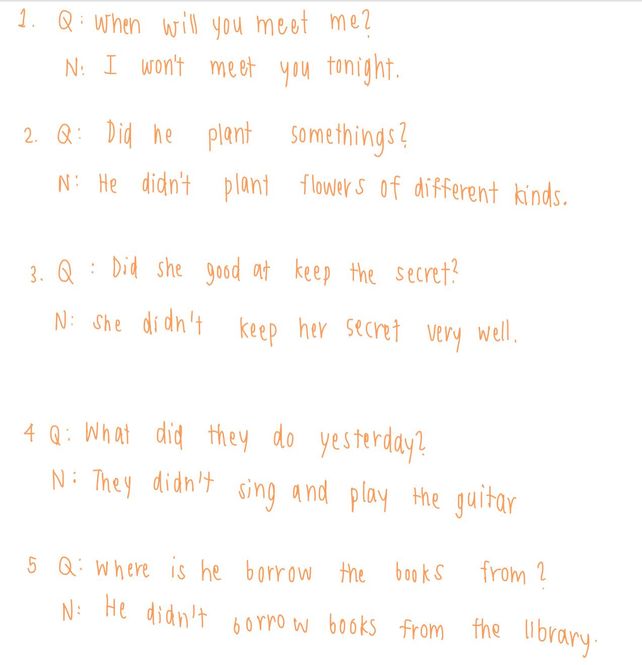 1. Q: When will you meet me?
N: I won't meet you tonight.
2. Q: Did he plant somethings?
N: He didn't plant flowers of different kinds.
3. Q: Did she good at keep the secret?
N: She didn't keep her secret very well.
4 Q: What did they do yesterday?
N: They didn't sing and play the guitar
5 Q: Where is he borrow the books from?
N: He didn't borrow books from the library.